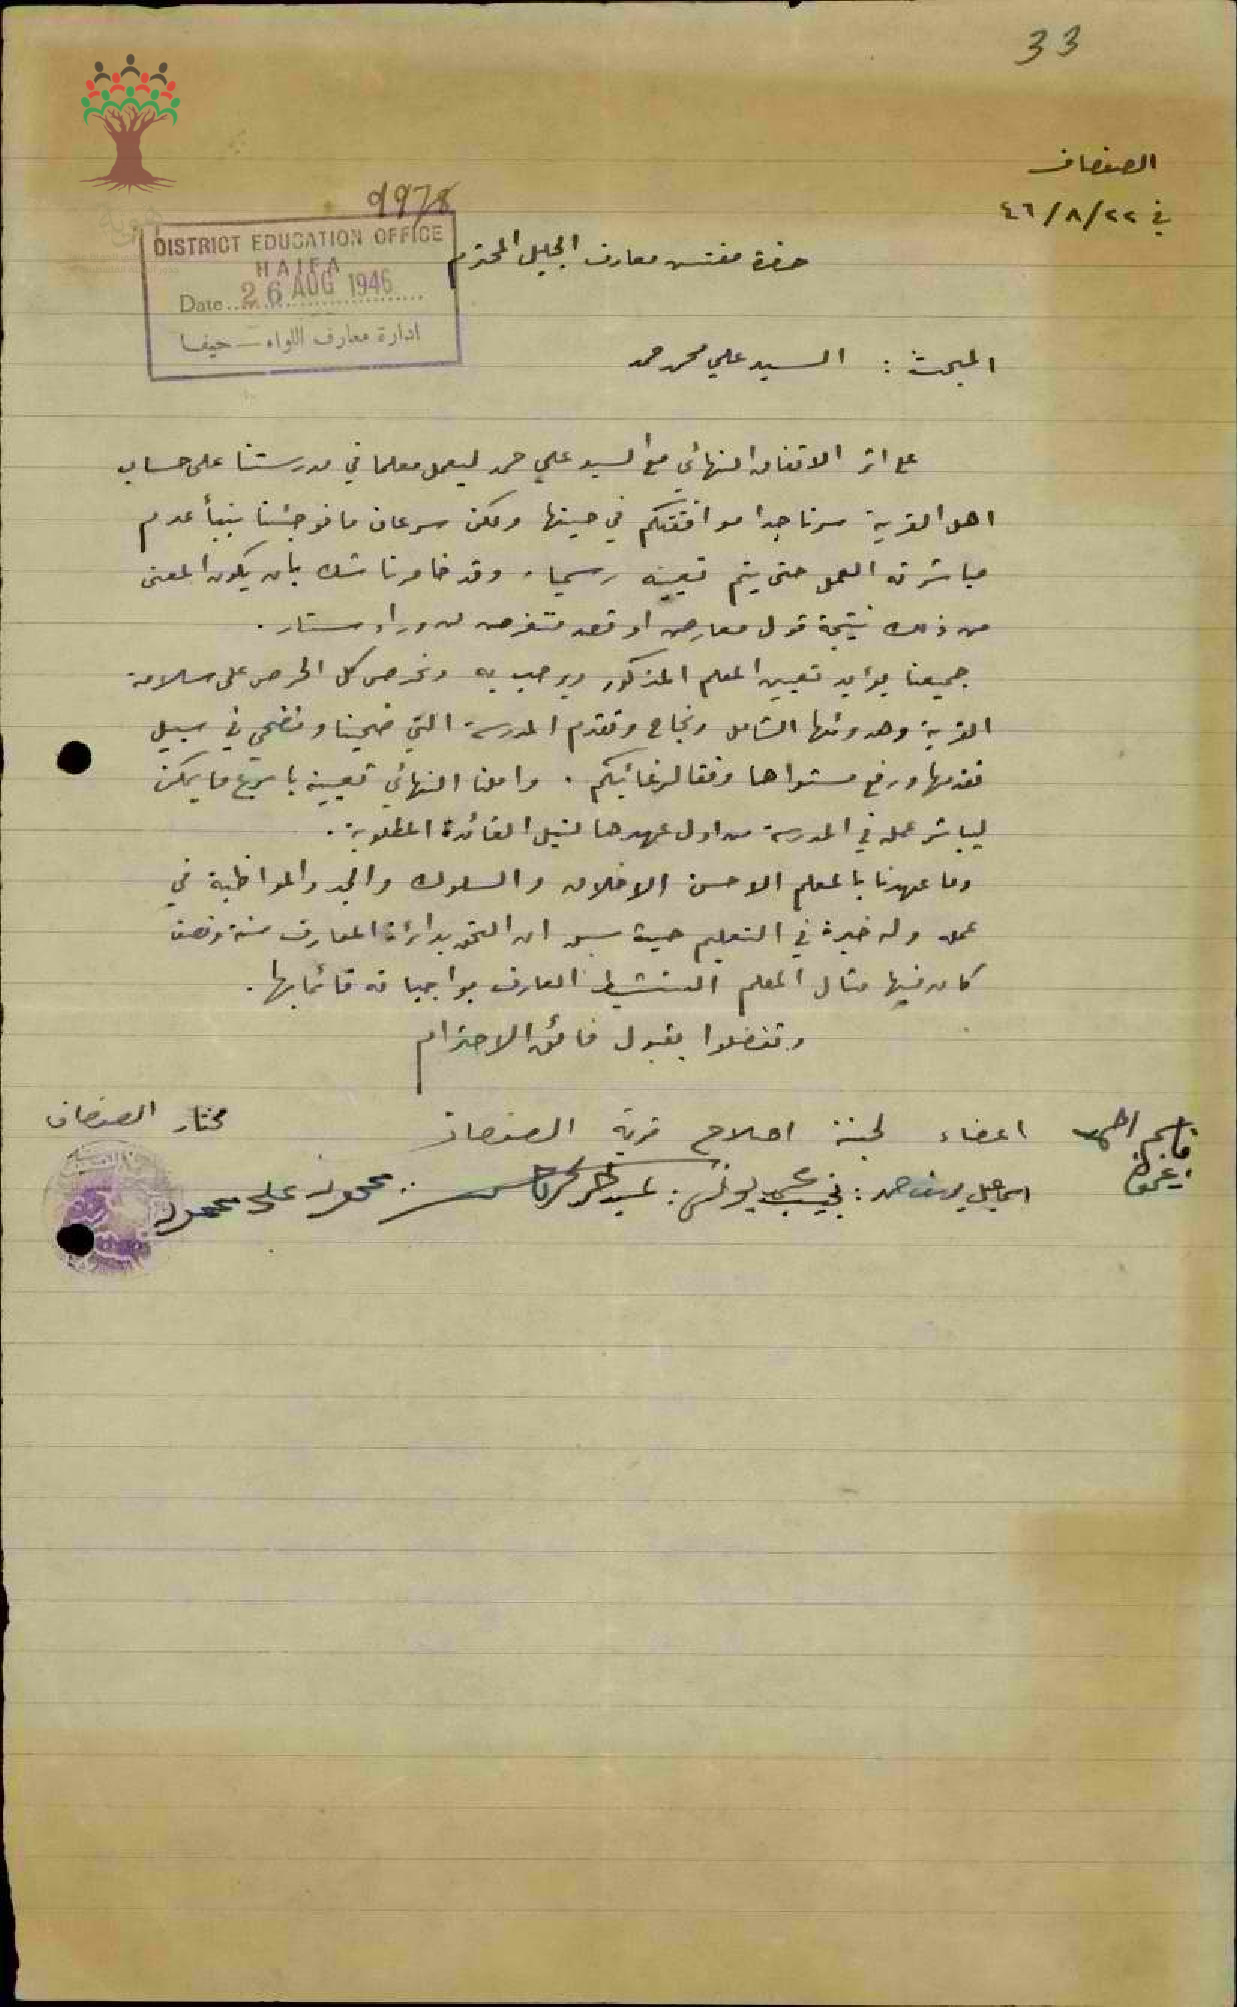 33
الصفصاف
في ٢٢/٨/٤٦
9978
DISTRICT EDUCATION OFFICE
HAIFA
Date 26 AUG 1946
ادارة معارف اللواء – حيفا
حضرة مفتش معارف الجليل المحترم
المبحث : السيد علي محمد حمد
على اثر الاتفاق النهائي مع السيد علي حمد ليعمل معلما في مدرستنا على حساب
اهل القرية سرنا جدا موافقتكم في حينها ولكن سرعان ما فوجئنا بنبأ عدم
مباشرته العمل حتى يتم تعيينه رسميا . وقد خامرنا شك بان يكون المعنى
من ذلك نتيجة قول معارض او قصد متغرض من وراء ستار .
جميعنا يؤيد تعيين المعلم المذكور ويرحب به ونحرص كل الحرص على سلامة
القرية وهدوئها الشامل ونجاح وتقدم المدرسة التي ضحينا ونضحي في سبيل
تقدمها ورفع مستواها وفقا لرغائبكم . واملنا النهائي تعيينه باسرع ما يمكن
ليباشر عمله في المدرسة من اول عهدها لنيل الفائدة المطلوبة .
وما عهدنا بالمعلم الا حسن الاخلاق والسلوك والجد والمواظبة في
عمله وله خبرة في التعليم حيث سبق ان التحق بدائرة المعارف سنة ونصف
كان فيها مثال المعلم النشيط العارف بواجباته قائما بها .
وتفضلوا بقبول فائق الاحترام
اعضاء لجنة اصلاح قرية الصفصاف
مختار الصفصاف
قاسم احمد
زغموت
اسماعيل يوسف حمد : نجيب يونس :
محمود علي محمود